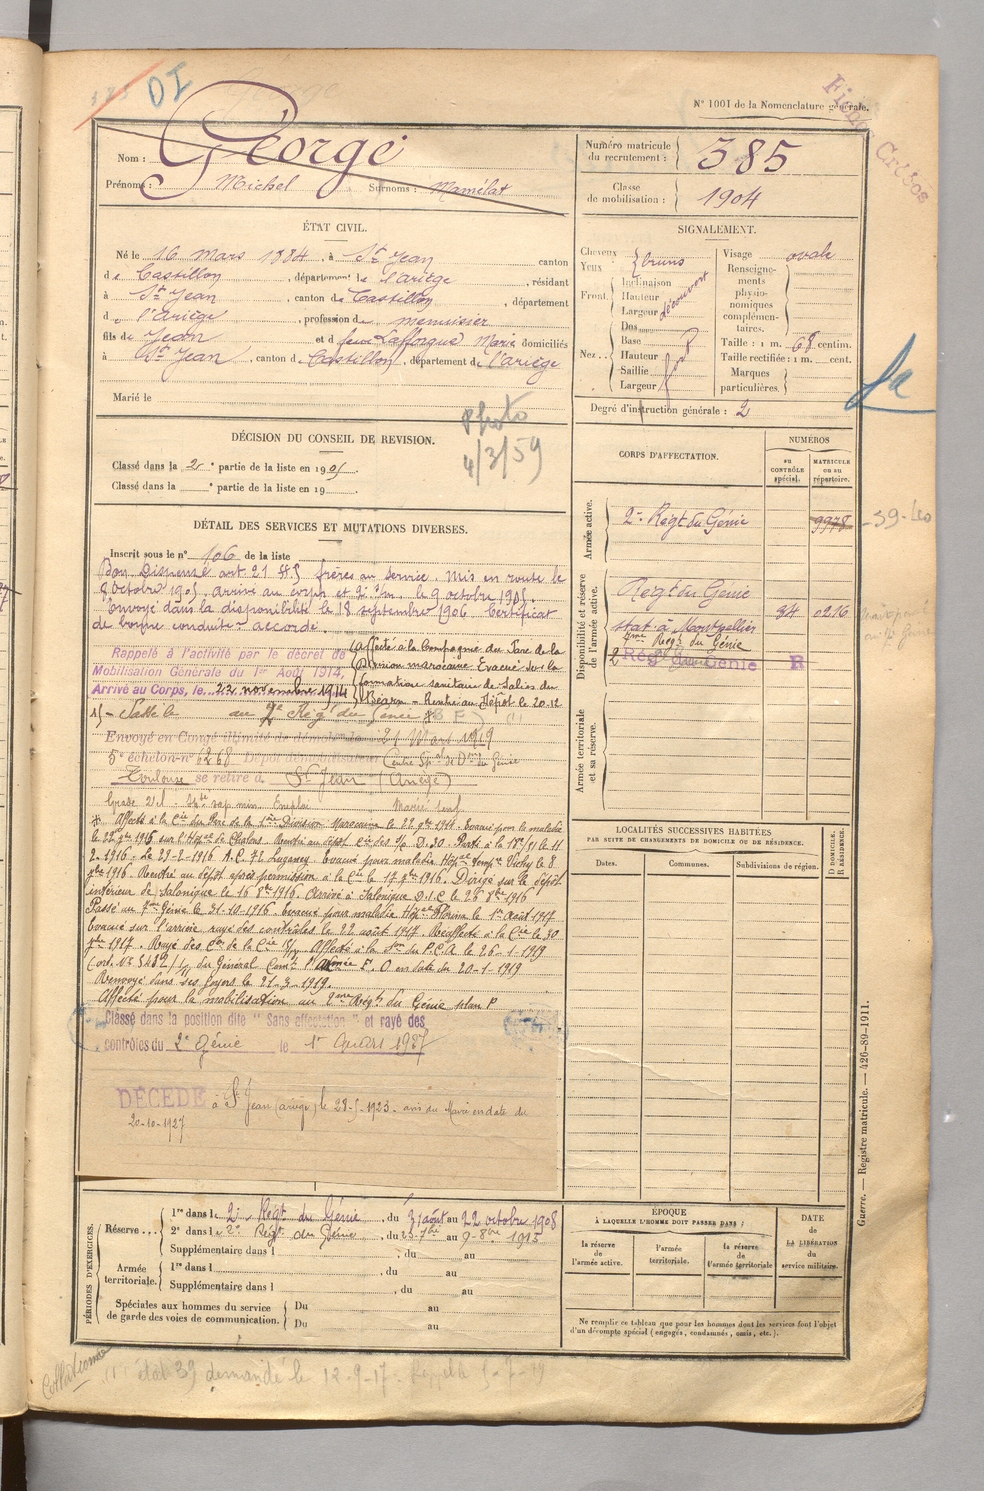 DI
N° 1001 de la Nomenclature générale.
Nom : George
Prénoms : Michel Surnoms : Mamélat
Numéro matricule du recrutement : 385
Classe de mobilisation : 1904
ÉTAT CIVIL.
Né le 16 mars 1884, à St Jean canton
de Castillon, département de l'ariège, résidant
à St Jean, canton de Castillon, département
d e l'ariège, profession de menuisier
fils de Jean et de feue Lafforgue Marie domiciliés
à St Jean, canton de Castillon, département de l'ariège
Marié le
SIGNALEMENT.
Cheveux
Yeux
bruns
Front.
Inclinaison
Hauteur
Largeur
découvert
Nez..
Dos
Base
Hauteur
Saillie
Largeur
fort
Visage ovale
Renseignements physionomiques complémentaires.
Taille : 1 m. 68 centim.
Taille rectifiée : 1 m. cent.
Marques particulières.
Degré d'instruction générale : 2
Photo
4/3/59
DÉCISION DU CONSEIL DE REVISION.
Classé dans la 2e partie de la liste en 1905
Classé dans la e partie de la liste en 19
DÉTAIL DES SERVICES ET MUTATIONS DIVERSES.
Inscrit sous le n° 106 de la liste
Bon Dispensé art. 21 frères au service. Mis en route le
8 octobre 1905. arrivé au corps et le 9 octobre 1905.
Envoyé dans la disponibilité le 18 septembre 1906 Certificat
de bonne conduite accordé.
Rappelé à l'activité par le décret de
Mobilisation Générale du 1er Août 1914,
Arrivé au Corps, le 22 novembre 1914
Affecté à la Compagnie du Parc de la
Division marocaine Evacué sur la
formation sanitaire de Salies du
Béarn - Rentré au Dépôt le 20-12
15 - Passé le au 7e Rég. du Génie
Envoyé en Congé illimité de démobilisation 21 Mars 1919
5e échelon n° 6268 Dépôt démobilisateur Centre Spal de Don du Génie
Toulouse se retire à St Jean (Ariège)
Grade Emploi
Affecté à la Cie du Parc de la 1ère Division Marocaine le 22 9bre 1914. Evacué pour la maladie
le 22 1916 sur l'Hôpal de Chalons. Rentré au dépôt
2-1916. Le 29-2-1916 Evacué pour maladie Hôpal Vichy le 8
1916. Rentré au dépôt après permission à la Cie le 17 1916. Dirigé sur le dépôt
intérieur de Salonique le 16 8bre 1916 Arrivé à Salonique D.I.C le 26 8bre 1916
Passé au 7me Génie le 31-10-1916. Evacué pour maladie Hôpal Florina le 1er Août 1917
Evacué sur l'arrière rayé des contrôles le 22 août 1917. Réaffecté à la Cie le 30
1917. Rayé des de la Cie Affecté à la P.C.A le 26-1-1919
du Général Comt l'Armée F. O en date du 20-1-1919
Renvoyé dans ses foyers le 21-3-1919.
Affecté pour la mobilisation au 2me Régt du Génie plan P
Classé dans la position dite "Sans affectation" et rayé des
contrôles du 2e Génie le 1er Mars 1927
DECEDE à St Jean (ariège) le 28-5-1923. avis du Maire en date du
20-10-1927
CORPS D'AFFECTATION.
NUMÉROS
au CONTRÔLE spécial.
MATRICULE ou au répertoire.
Armée active.
2e Régt du Génie 9978
Disponibilité et réserve de l'armée active.
Regt du Génie
stat à Montpellier 34 0216
7me Rég. du Génie
2 Rég. Génie R
Armée territoriale et sa réserve.
LOCALITÉS SUCCESSIVES HABITÉES
PAR SUITE DE CHANGEMENTS DE DOMICILE OU DE RÉSIDENCE.
Dates.
Communes.
Subdivisions de région.
D DOMICILE, R RÉSIDENCE.
PÉRIODES D'EXERCICES.
Réserve...
1re dans le 2e Régt du Génie, du 31 août au 22 octobre 1908
2e dans le 2e Régt du Génie, du 23-7bre au 9-8bre 1913
Supplémentaire dans l , du au
Armée territoriale.
1re dans l , du au
Supplémentaire dans l , du au
Spéciales aux hommes du service de garde des voies de communication.
Du au
Du au
ÉPOQUE
À LAQUELLE L'HOMME DOIT PASSER DANS :
la réserve de l'armée active.
l'armée territoriale.
la réserve de l'armée territoriale
DATE de LA LIBÉRATION du service militaire.
Ne remplir ce tableau que pour les hommes dont les services font l'objet
d'un décompte spécial (engagés, condamnés, omis, etc.).
Guerre. — Registre matricule. — 426-89-1911.
Collationné
état 39 demandé le 12-9-17